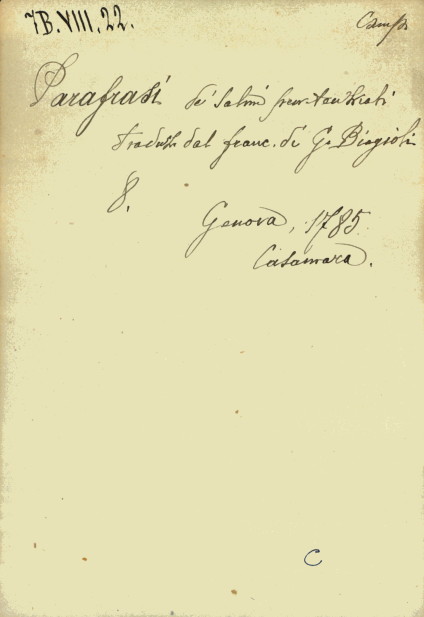 7B.VIII.22.
Parafrasi de' Salmi penitenziali
Tradotti dal franc. di G. Biagioli
8.
Genova, 1785.
Casamara.
C